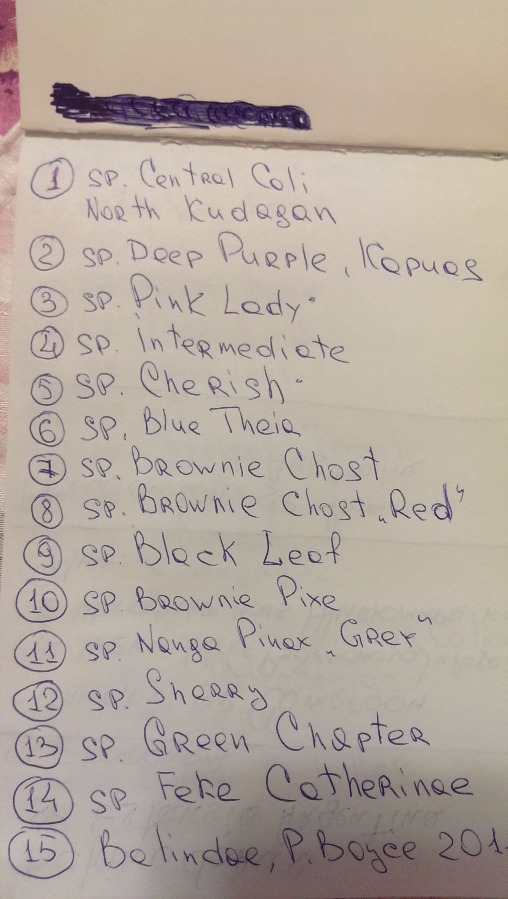 1 sp. Central Coli
North Kudagan
2 sp. Deep Purple, Kapuas
3 sp. Pink Lady
4 sp. Intermediate
5 sp. Cherish
6 sp. Blue Theia
7 sp. Brownie Chost
8 sp. Brownie Chost „Red“
9 sp. Black Leaf
10 sp. Brownie Pixe
11 sp. Nanga Pinax „Grey“
12 sp. Sherry
13 sp. Green Chapter
14 sp Feke Catherinae
15 Belindae, P. Boyce 201